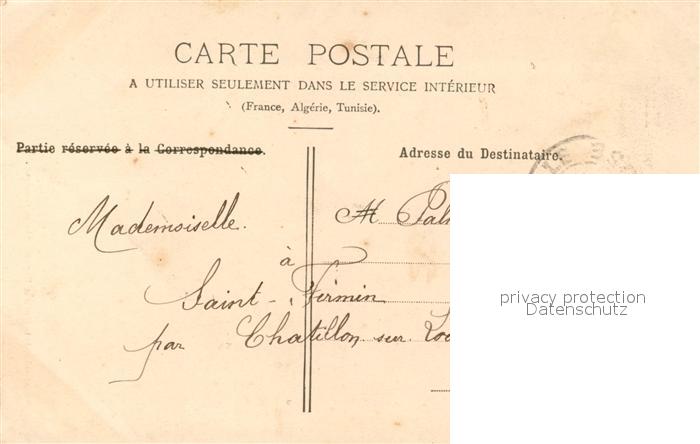 CARTE POSTALE
A UTILISER SEULEMENT DANS LE SERVICE INTÉRIEUR
(France, Algérie, Tunisie).
Partie réservée à la Correspondance.
Adresse du Destinataire.
Mademoiselle.
à
Saint-Firmin
par Chatillon sur
privacy protection
Datenschutz